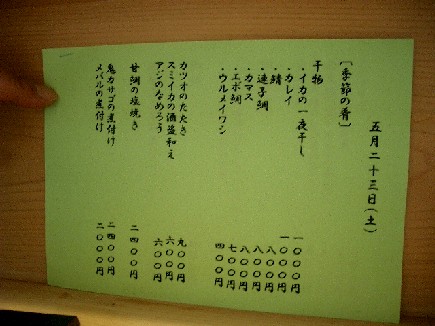 五月二十三日(土)
[季節の肴]
干物
・イカの一夜干し 一〇〇〇円
・カレイ 一〇〇〇円
・鯖 八〇〇円
・連子鯛 八〇〇円
・カマス 八〇〇円
・エボ鯛 七〇〇円
・ウルメイワシ 四〇〇円
カツオのたたき 九〇〇円
スミイカの酒盗和え 六〇〇円
アジのなめろう 六〇〇円
甘鯛の塩焼き 二四〇〇円
鬼カサゴの煮付け 二四〇〇円
メバルの煮付け 二〇〇〇円